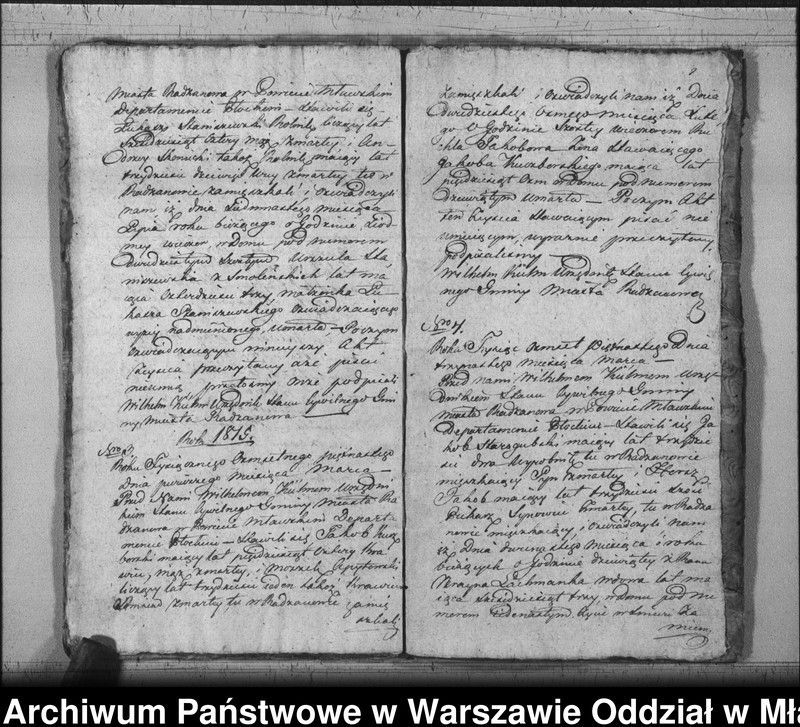 Miasta Radzanowa w Powiecie Mławskim
Departamencie Płockim – Stawili się
Łukasz Staniszewski Rolnik liczący lat
sześćdziesiąt cztery mąż zmarłey, i An-
drzey Słomski także Rolnik mający lat
trzydzieści dziewięć zmarłey tu w
Radzanowie zamieszkali i oświadczyli
nam iż dnia siedmnastego miesiąca
roku bieżącego o Godzinie siód-
mey wieczor, w domu pod numerem
dwudziestym szóstym, Urszula Sta
niszewska z Smoleńskich lat ma
iąca czterdzieści trzy, małżonka Łu-
kasza Staniszewskiego oświadczaiącego
wyżey nadmienionego, umarła – Poczym
oświadczaiącym ninieyszy Akt
przeczytany a że pisać
nieumią podpisali
Wilhelm Kühm Urzędnik Stanu Cywilnego Gmi
ny Miasta Radzanowa
Rok 1815.
Nro 3.
Roku Tysiącznego Ośmsetnego piętnastego
Dnia pierwszego Miesiąca Marca –
Przed Nami Wilhelmem Kühmem Urzędni
kiem Stanu Cywilnego Gminy Miasta Ra
dzanowa w Powiecie Mławskim Departa-
mencie Płockim – Stawili się Jakob Kucz
borski maiący lat pięćdziesiąt cztery Kra
wiec, mąż zmarłey, i
liczący lat trzydzieści ieden także Krawiec
zmarłey tu w Radzanowie zamie
szkali
zamieszkali i oświadczyli nam iż Dnia
dwudziestego Osmego miesiąca Lute
go o Godzinie szóstey wieczorem Ru
chla Jakobowa żona stawaiącego
Jakoba Kuczborskiego maiąca lat
pięćdziesiąt Ośm w Domu pod numerem
dziewiątym umarła – Poczym Akt
ten Zeyścia stawaiącym pisać nie
umieiącym, wyraźnie przeczytany
podpisaliśmy –
Wilhelm Kühm Urzędnik Stanu Cywil
nego Gminy Miasta Radzanowa
Nro 4.
Roku Tysiąc Ośmset Piętnastego Dnia
trzynastego Miesiąca Marca –
Przed nami Wilhelmem Kühmem Urzę
dnikiem Stanu Cywilnego Gminy
Miasta Radzanowa w Powiecie Mławskim
Departamencie Płockim – Stawili się Ja
kob Starogubski maiący lat trzydzie
ści dwa Wyrobnik tu w Radzanowie
mieszkaiący Syn zmarłey i Hersz
Jakob maiący lat trzydzieści sześć
zmarłey, tu w Radza
nowie mieszkaiący, i oświadczyli nam
iż Dnia dwunastego Miesiąca i roku
bieżących o Godzinie dziewiątey z Rana
Frayna Lachmanka wdowa lat ma
iąca sześćdziesiąt trzy, w domu pod nu
merem Jedenastym życie w śmierć Za
mieni
Archiwum Państwowe w Warszawie Oddział w Mła